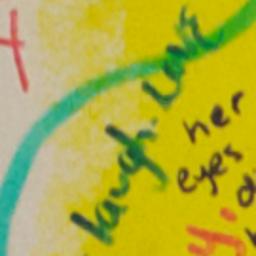 laugh. LOVE
her
eyes